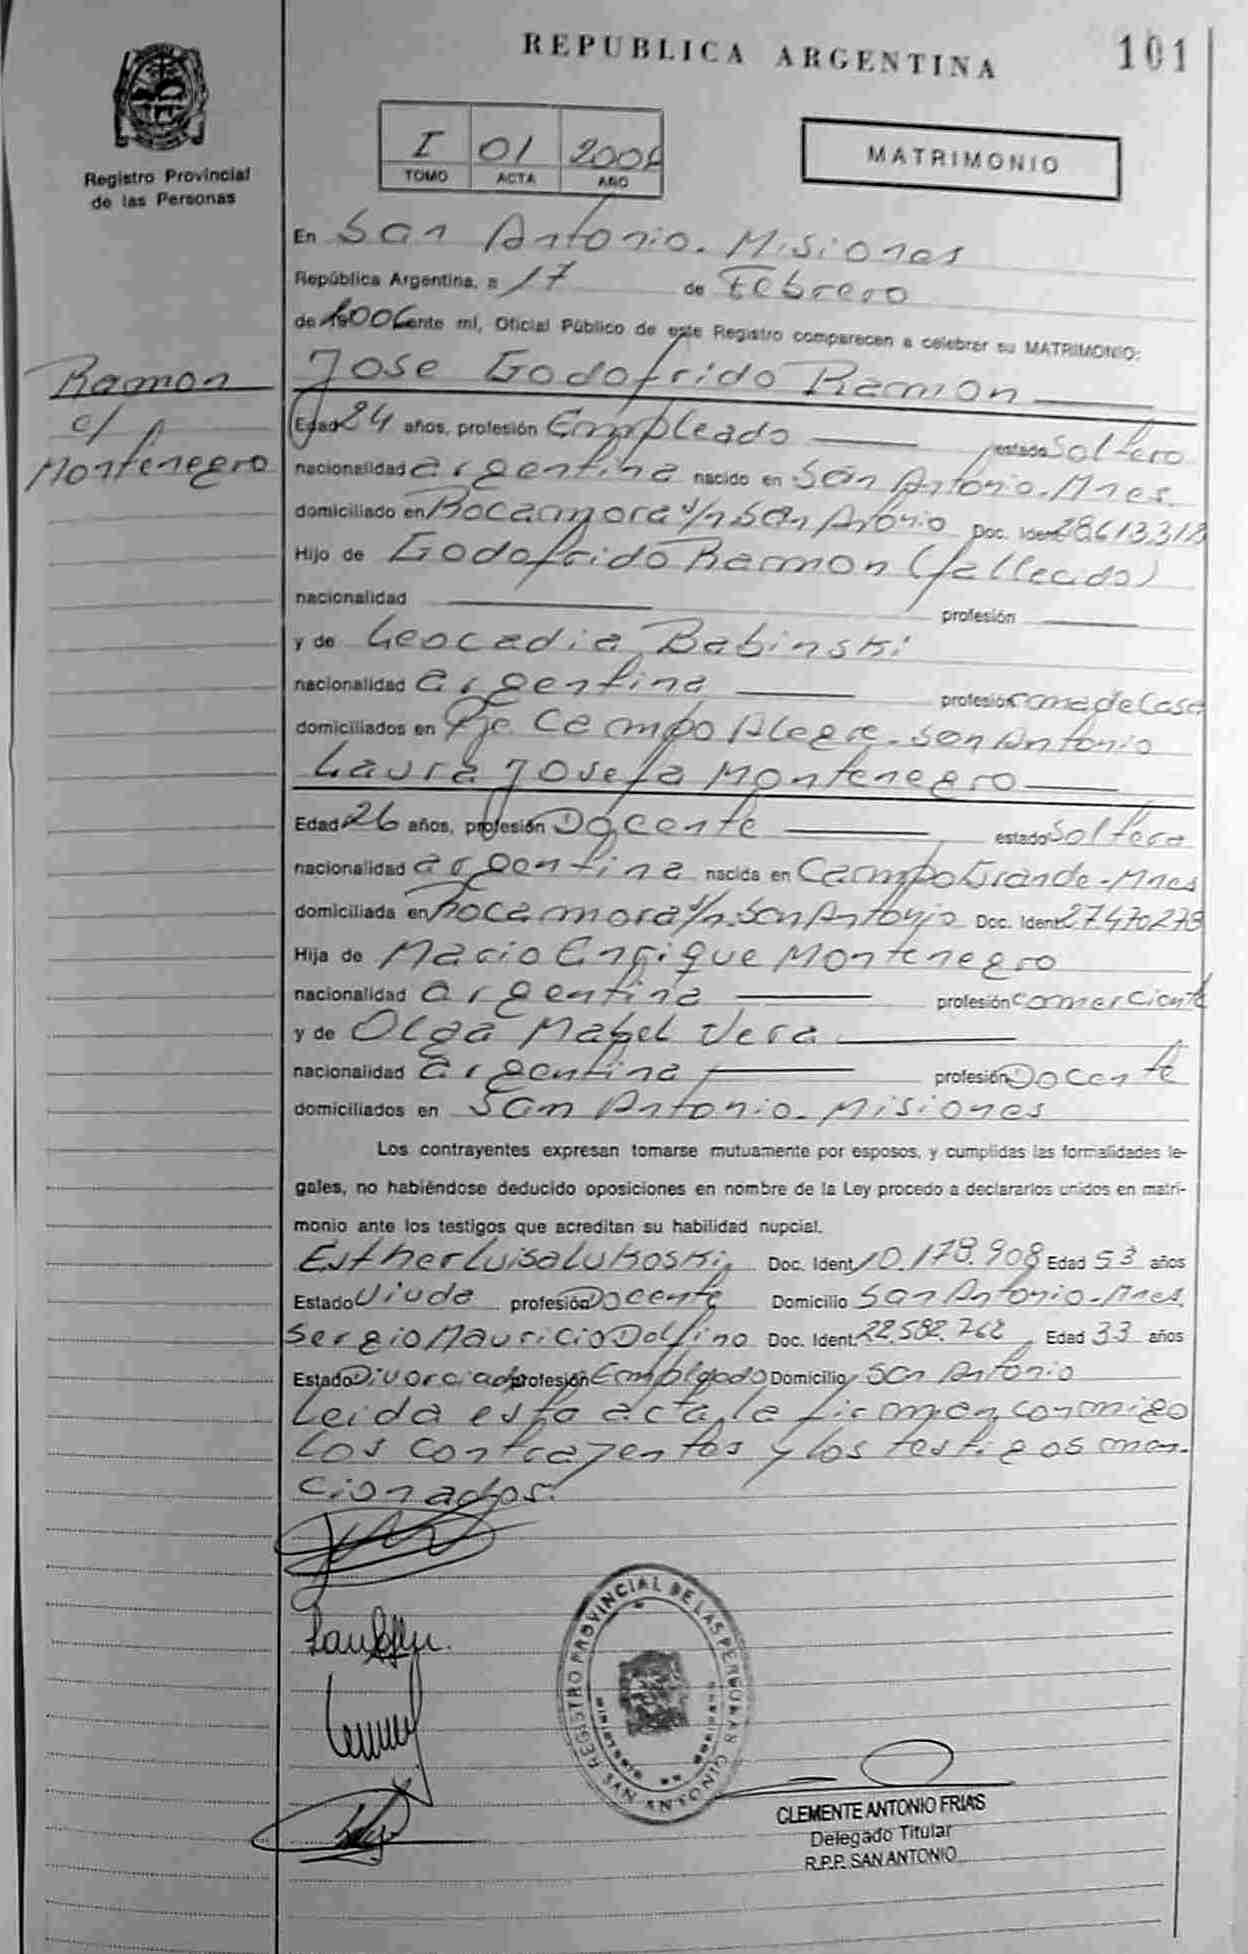 REPUBLICA ARGENTINA
101
Registro Provincial
de las Personas
I 01 2006
TOMO ACTA AÑO
MATRIMONIO
En San Antonio. Misiones
República Argentina, a 17 de Febrero
de 2006 ante mí, Oficial Público de este Registro comparecen a celebrar su MATRIMONIO:
Ramon
c/
Montenegro
Jose Godofrido Ramon
Edad 24 años, profesión Empleado estado Soltero
nacionalidad argentina nacido en San Antonio. Mnes.
domiciliado en Rocamora s/n San Antonio Doc. Ident. 28.613.318
Hijo de Godofrido Ramon (fallecido)
nacionalidad profesión
y de Leocadia Babinski
nacionalidad argentina profesión ama de Casa
domiciliados en Pje. Campo Alegre - San Antonio
Laura Josefa Montenegro
Edad 26 años, profesión Docente estado Soltera
nacionalidad argentina nacida en Campo Grande - Mnes
domiciliada en Rocamora s/n. San Antonio Doc. Ident. 27.470.278
Hija de Mario Enrique Montenegro
nacionalidad argentina profesión comerciante
y de Olga Mabel Vera
nacionalidad argentina profesión Docente
domiciliados en San Antonio - Misiones
Los contrayentes expresan tomarse mutuamente por esposos, y cumplidas las formalidades le-
gales, no habiéndose deducido oposiciones en nombre de la Ley procedo a declararlos unidos en matri-
monio ante los testigos que acreditan su habilidad nupcial.
Esther Luisa Lukoski Doc. Ident. 10.178.908 Edad 53 años
Estado Viuda profesión Docente Domicilio San Antonio - Mnes.
Sergio Mauricio Dolfino Doc. Ident. 22.582.762 Edad 33 años
Estado Divorciado profesión Empleado Domicilio San Antonio
Leida esta acta, la firman conmigo
los contrayentes y los testigos men-
cionados.
REGISTRO PROVINCIAL DE LAS PERSONAS
SAN ANTONIO
CLEMENTE ANTONIO FRIAS
Delegado Titular
R.P.P. SAN ANTONIO